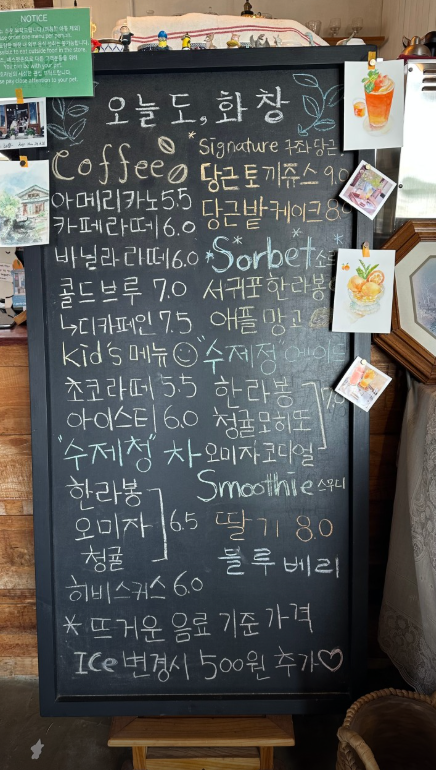 NOTICE
오늘도, 화창
Coffee
아메리카노 5.5
카페라떼 6.0
바닐라 라떼 6.0
콜드브루 7.0
디카페인 7.5
kid's 메뉴
초코라떼 5.5
아이스티 6.0
"수제청" 차
한라봉
오미자
청귤
6.5
히비스커스 6.0
Signature 구좌당근
당근토끼쥬스 9.0
당근밭케이크
*Sorbet*
서귀포한라봉
애플망고
"수제청"에이드
한라봉
청귤모히또
오미자코디얼
Smoothie 스무디
딸기 8.0
블루베리
* 뜨거운 음료 기준 가격
ICe 변경시 500원 추가♡